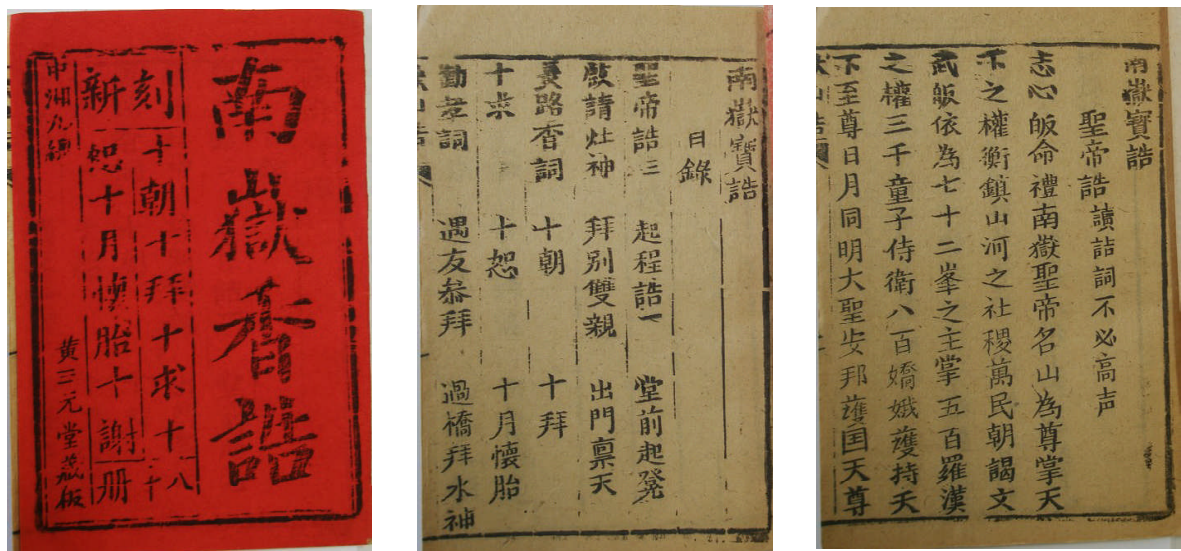 南嶽香誥
刻新
十朝十拜十求十
恕十月懷胎十謝
八二十册
黄三元堂藏板
中湘九總
南嶽寶誥
目錄
聖帝誥三 起程誥一 堂前起凳
啟請灶神 拜别雙親 出門禀天
路香詞 十朝 十拜
十求 十恕 十月懷胎
勸孝詞 遇友叅拜 過橋拜水神
南嶽寶誥
聖帝誥讀誥詞不必高声
志心皈命禮南嶽聖帝名山為尊掌天
下之權衡鎮山河之社稷萬民朝謁文
武皈依為七十二峯之主掌五百羅漢
之權三千童子侍衛八百嬌娥護持天
下至尊日月同明大聖安邦護国天尊